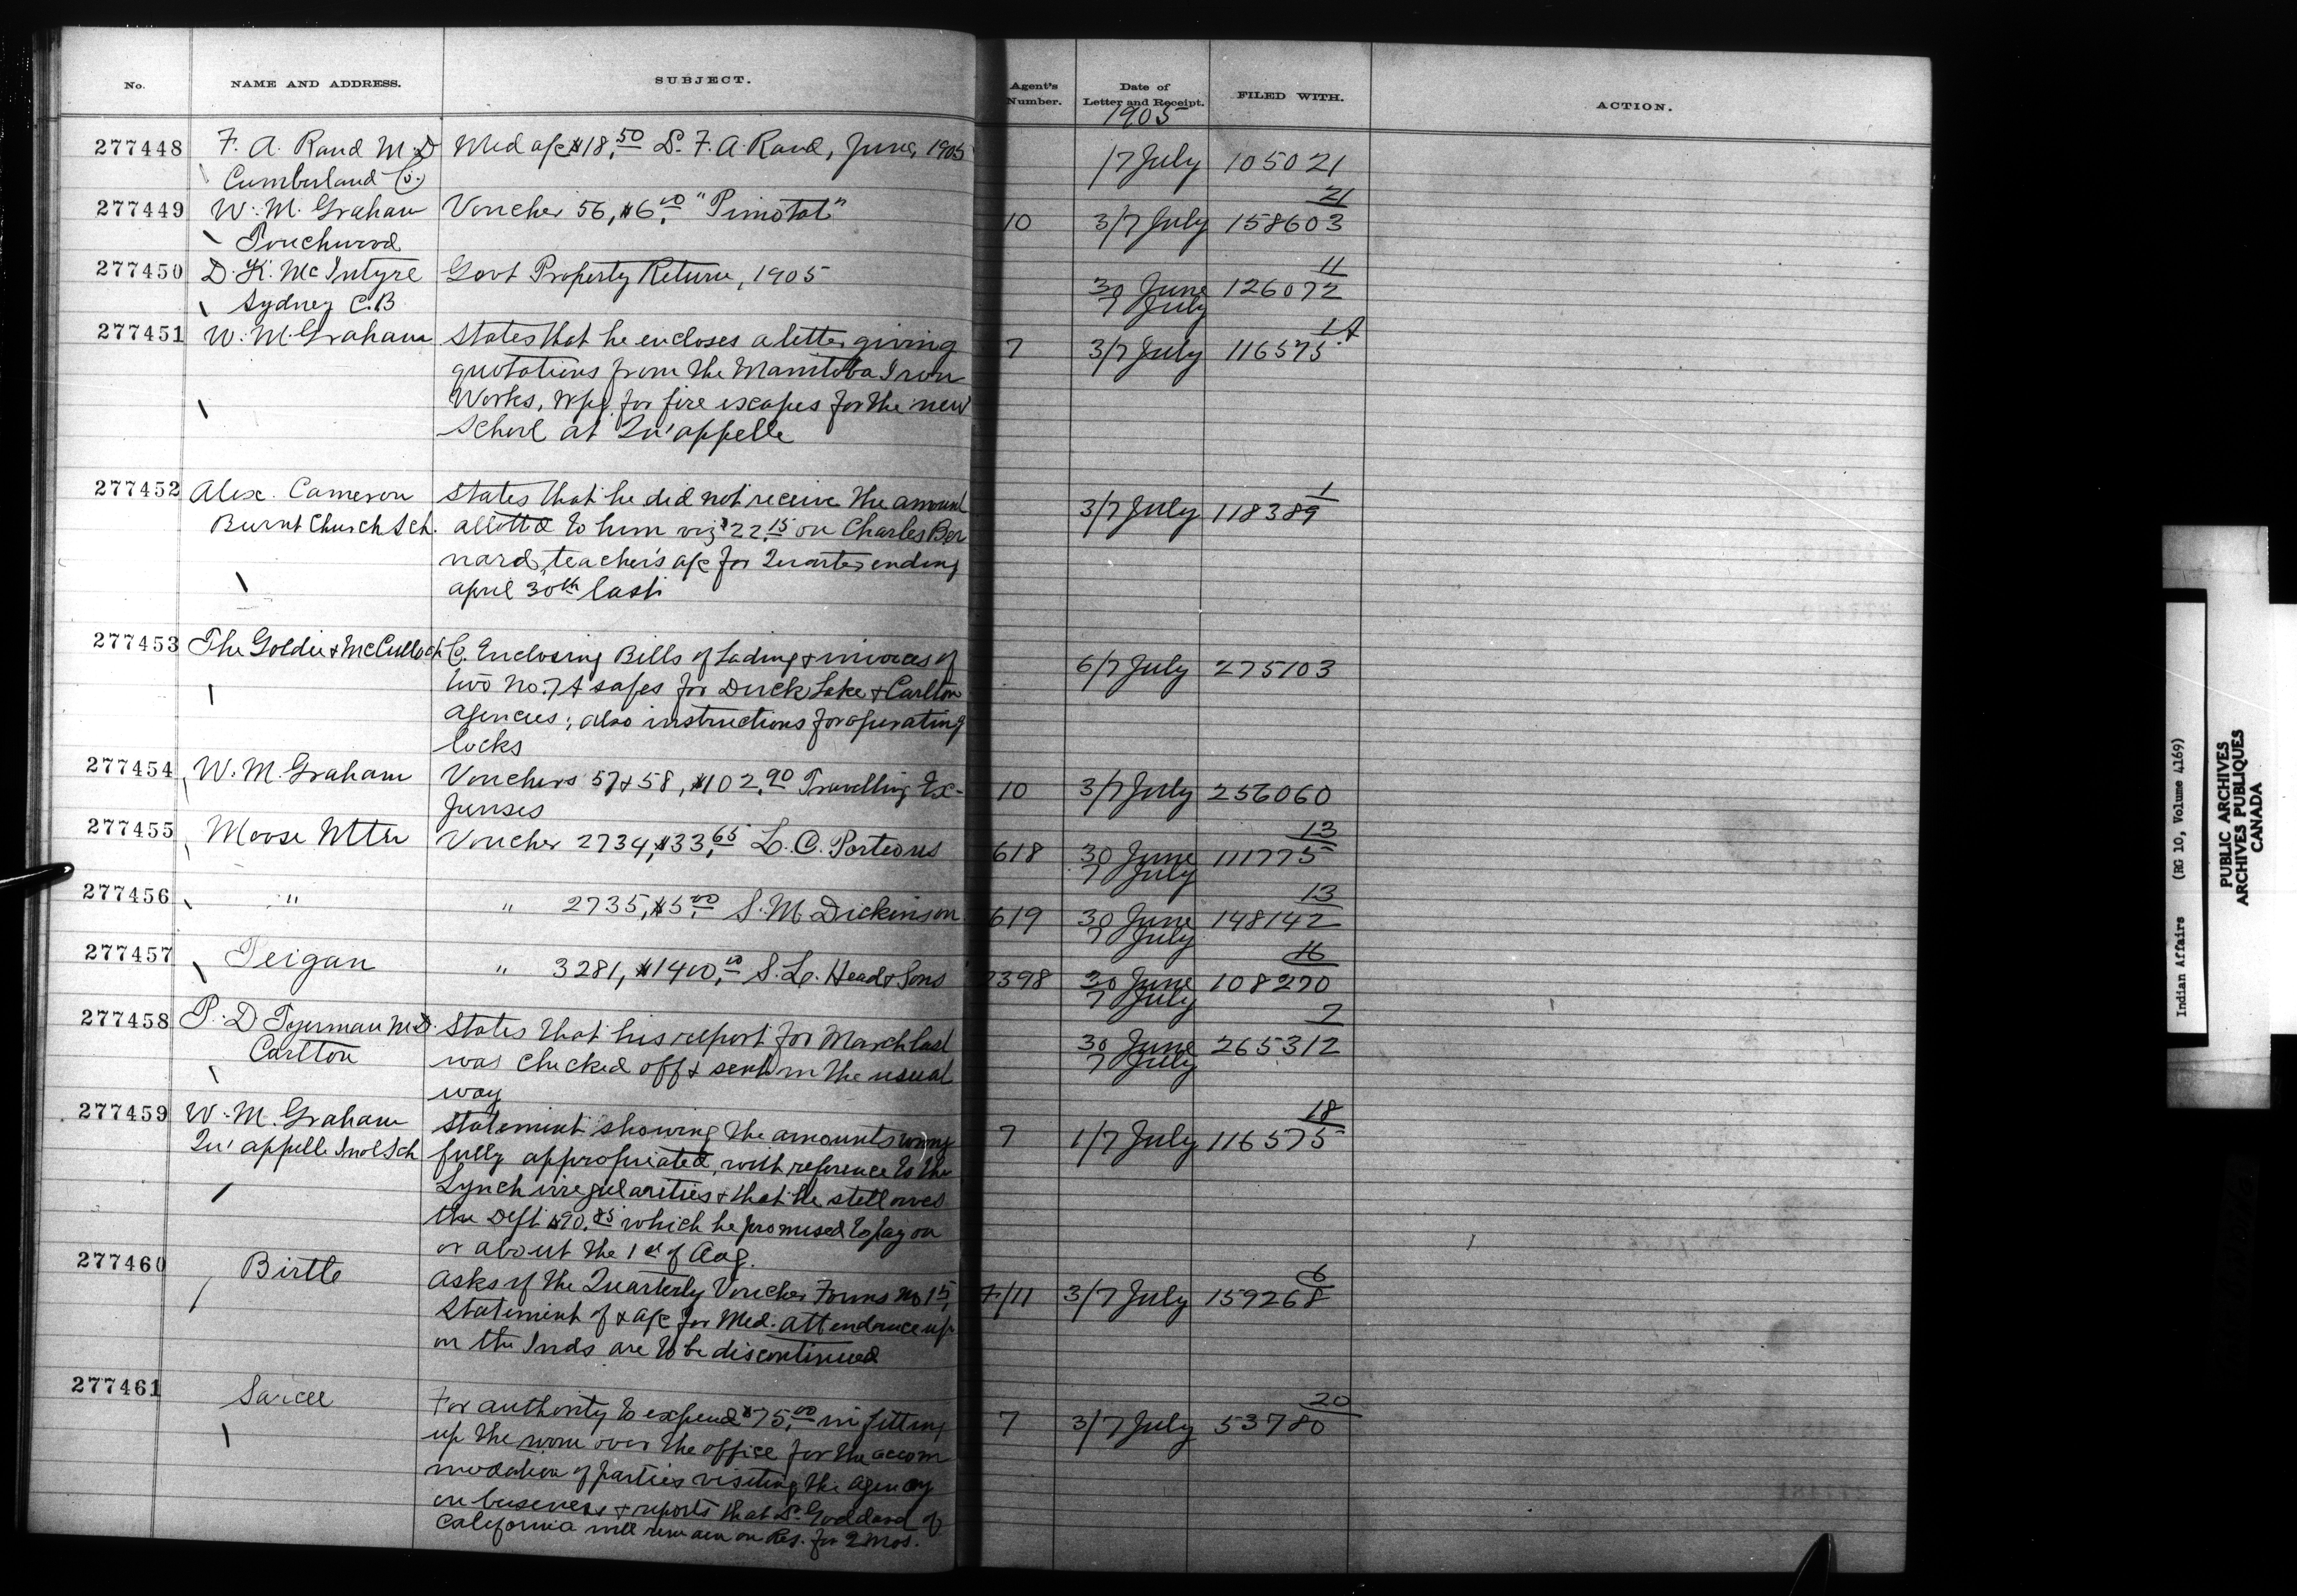 No. NAME AND ADDRESS. SUBJECT. Agent's Number. Date of Letter and Receipt. FILED WITH. ACTION.
1905
277448 F. A. Rand M.D Med a/c $18.50 Dr. F. A. Rand, June, 1905 17 July 105021
Cumberland Co.
21
277449 W. M. Graham Voucher 56, $6.00 "Pimotat" 10 3/7 July 158603
Touchwood
11
277450 D. K. McIntyre Govt Property Return, 1905 30 June 126072
Sydney C.B 7 July
1A
277451 W. M. Graham States that he encloses a letter giving 7 3/7 July 116575
quotations from the Manitoba Iron
Works, Wpg. for fire escapes for the new
School at Qu'appelle
1
277452 Alex. Cameron States that he did not receive the amount 3/7 July 118389
Burnt Church Sch. allotted to him viz $22.15 on Charles Ber
nard, teacher's a/c for Quarter ending
April 30th last
277453 The Goldie & McCulloch Co. Enclosing Bills of Lading & invoices of 6/7 July 275103
two No. 7A safes for Duck Lake & Carlton
Agencies; also instructions for operating
locks
277454 W. M. Graham Vouchers 57 & 58, $102.90 Travelling Ex- 10 3/7 July 256060
penses
13
277455 Moose Mtn Voucher 2734, $33.65 L. C. Porteous 618 30 June 111775
7 July
13
277456 " " 2735, $5.00 S. M. Dickinson 619 30 June 148142
7 July
16
277457 Peigan " 3281, $1400.00 S. L. Head & Sons 2398 30 June 108270
7 July
7
277458 P. D Tyerman M.D. States that his report for March last 30 June 265312
Carlton was checked off & sent in the usual 7 July
way
18
277459 W. M. Graham Statement showing the amounts wrong 7 1/7 July 116575
Qu'appelle Indl Sch fully appropriated, with reference to the
Lynch irregularities & that he still owes
the Dept $90.85 which he promised to pay on
or about the 1st of Aug.
6
277460 Birtle Asks if the Quarterly Voucher Forms No 15, 7/11 3/7 July 159268
Statement of & a/c for Med. attendance up
on the Inds are to be discontinued
20
277461 Sarcee For authority to expend $75.00 in fitting 7 3/7 July 53780
up the room over the office for the accom
modation of parties visiting the Agency
on business & reports that Dr. Goddard of
California will remain on Res. for 2 mos.
Indian Affairs (RG 10, Volume 4169)
PUBLIC ARCHIVES
ARCHIVES PUBLIQUES
CANADA